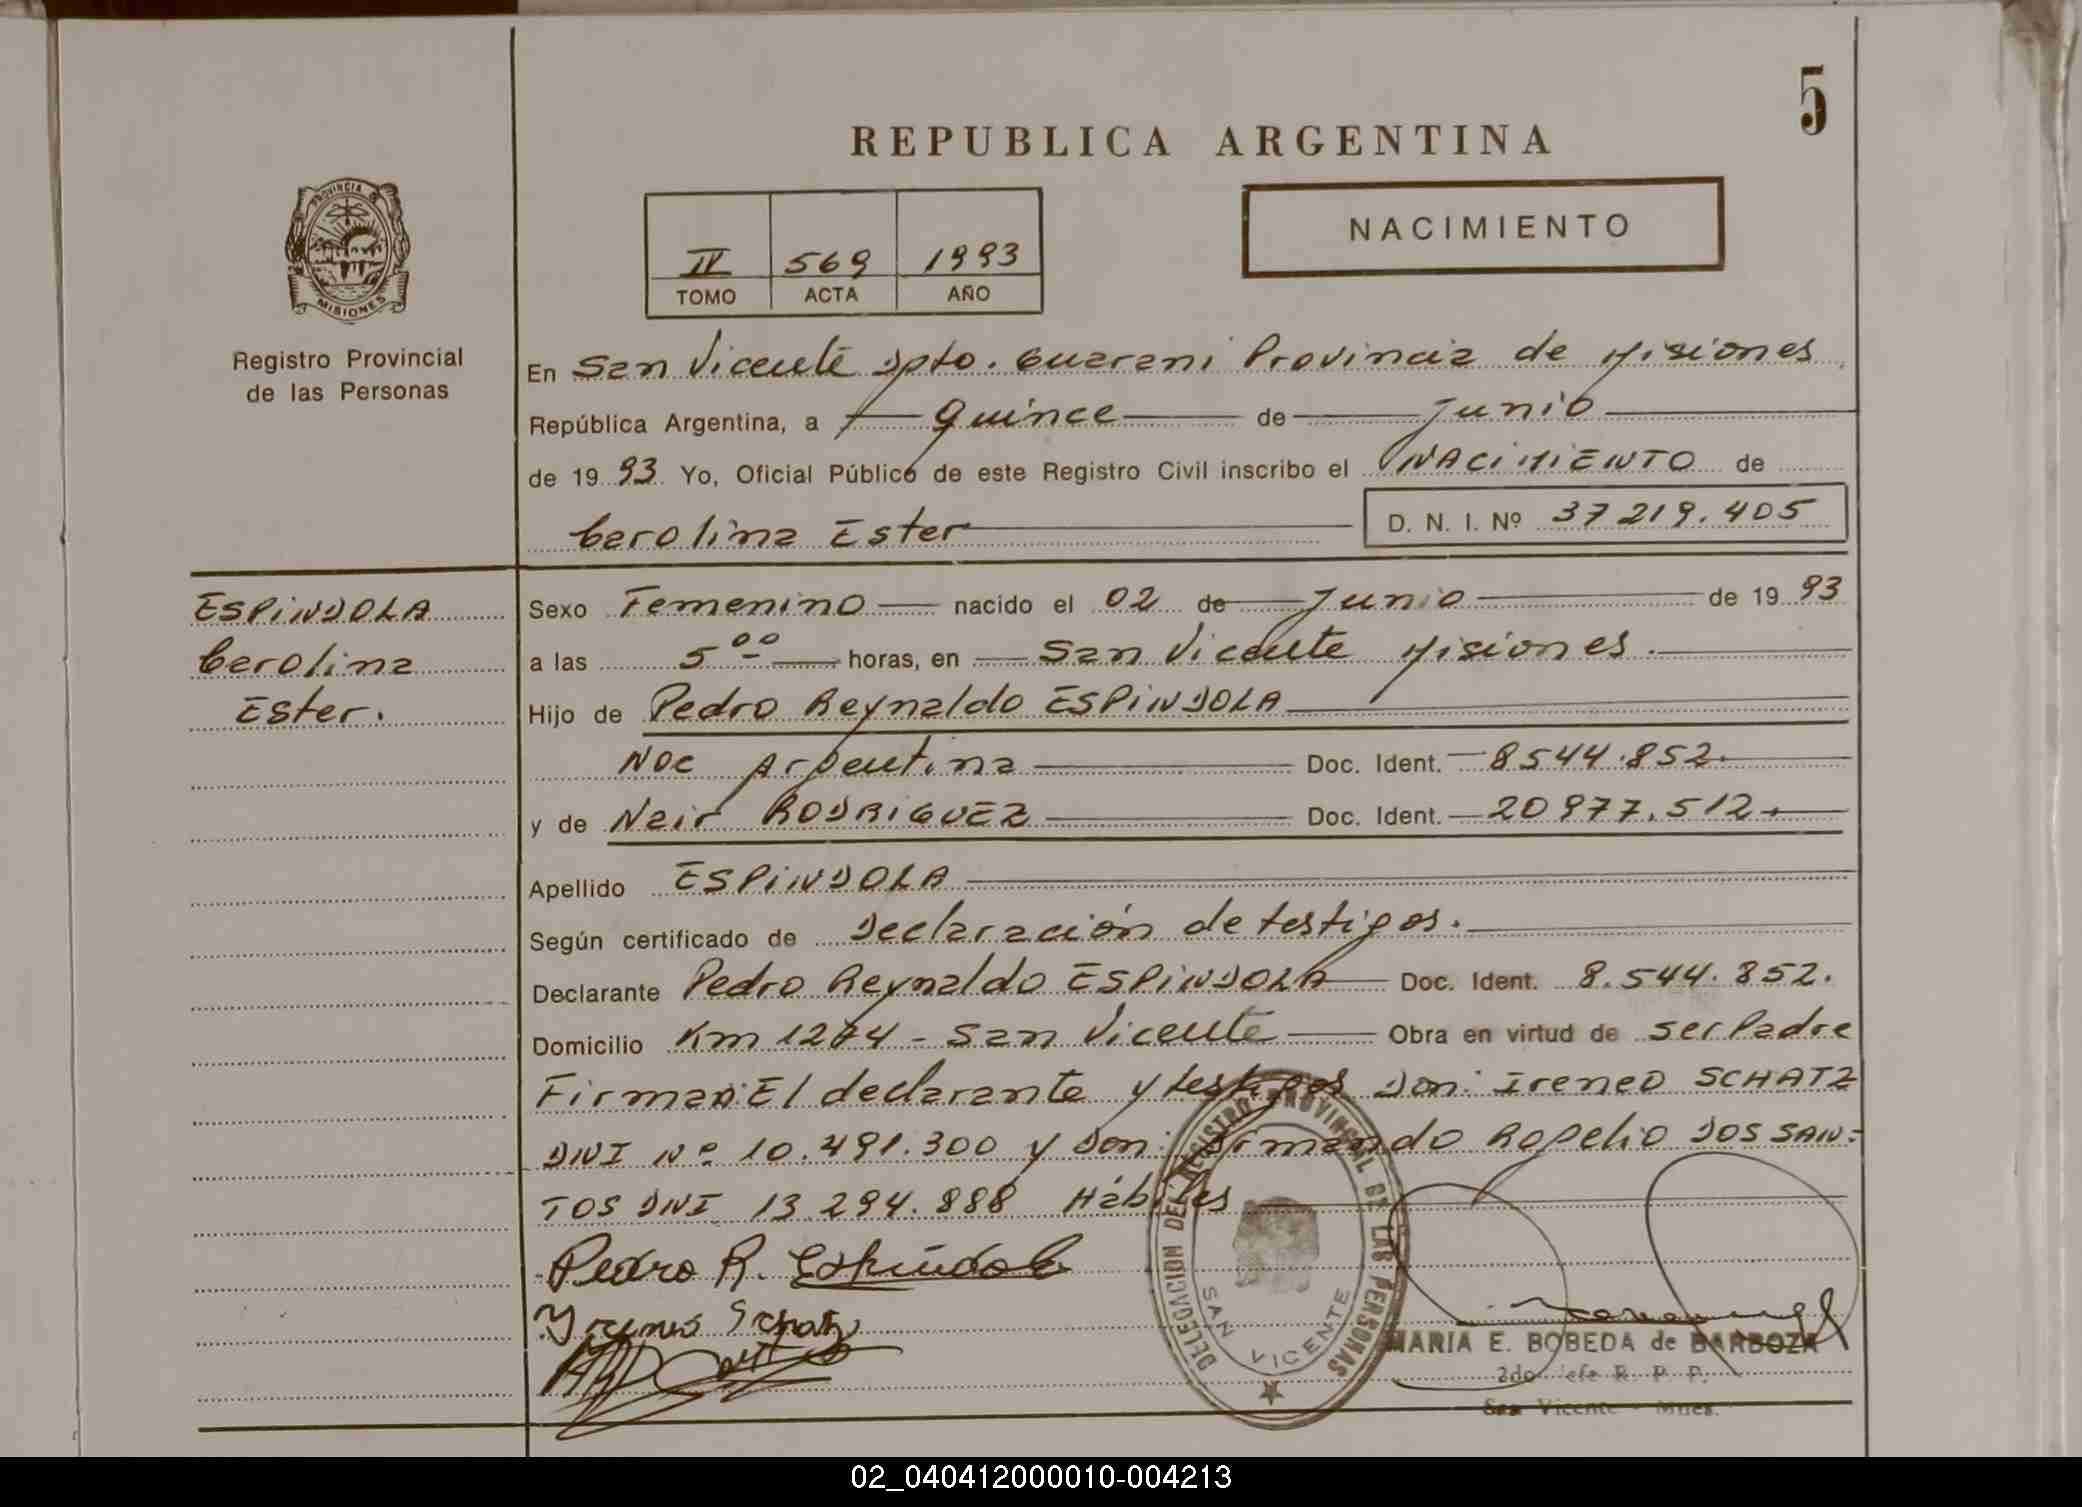 5
REPUBLICA ARGENTINA
PROVINCIA DE
MISIONES
Registro Provincial
de las Personas
IV 569 1993
TOMO ACTA AÑO
NACIMIENTO
En San Vicente Dpto. Guarani Provincia de Misiones
República Argentina, a Quince de Junio
de 1993 Yo, Oficial Público de este Registro Civil inscribo el NACIMIENTO de
Carolina Ester D. N. I. Nº 37219.405
ESPINDOLA
Carolina
Ester.
Sexo Femenino nacido el 02 de Junio de 1993
a las 5 00 horas, en San Vicente Misiones.
Hijo de Pedro Reynaldo ESPINDOLA
Nac Argentina Doc. Ident. 8544.852.
y de Nair RODRIGUEZ Doc. Ident. 20977.512.
Apellido ESPINDOLA
Según certificado de Declaración de testigos.
Declarante Pedro Reynaldo ESPINDOLA Doc. Ident. 8.544.852.
Domicilio Km 1274 - San Vicente Obra en virtud de ser Padre
Firman: El declarante y testigos Don: Ireneo SCHATZ
DNI Nº 10.491.300 y Don: Armando Rogelio DOS SAN-
TOS DNI 13.294.888 Hábiles
Pedro R. Espíndola
Yreneo Schatz
DELEGACION DEL REGISTRO PROVINCIAL DE LAS PERSONAS
SAN VICENTE
MARIA E. BOBEDA de BARBOZA
2do. Jefe R. P. P.
San Vicente - Mnes.
02_040412000010-004213